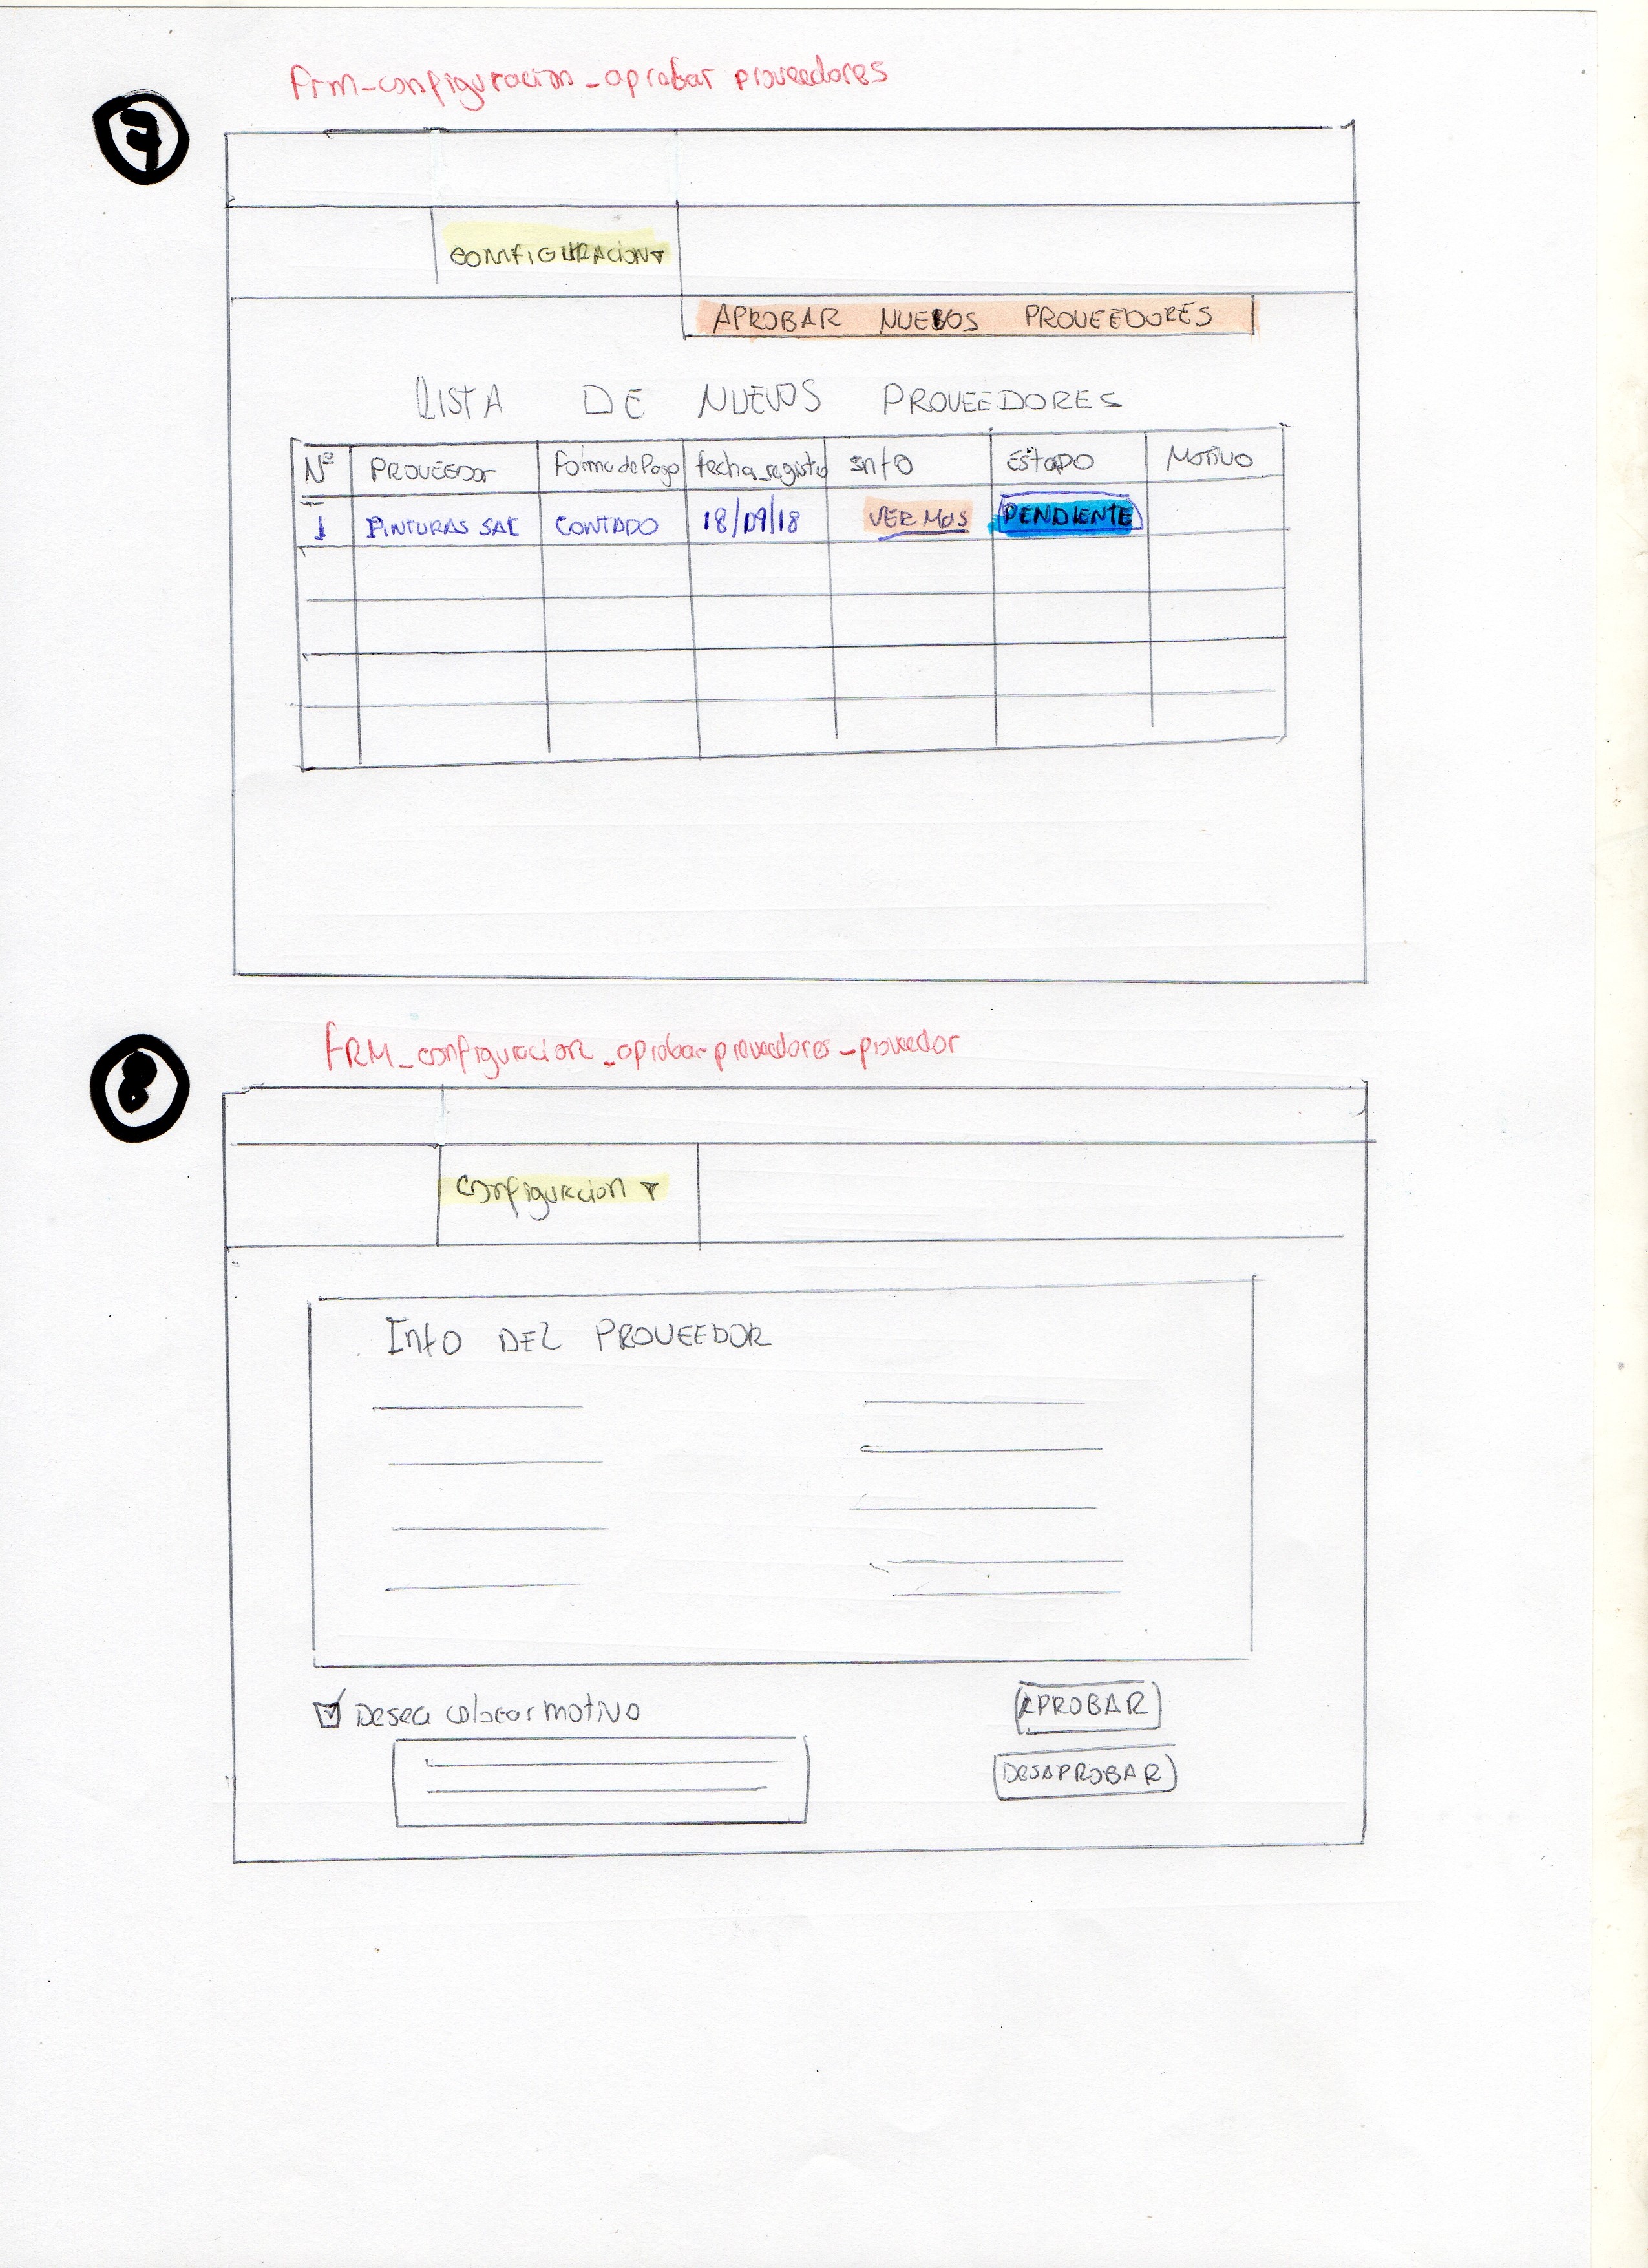 frm_configuracion_aprobar proveedores
7
CONFIGURACION▼
APROBAR NUEVOS PROVEEDORES
LISTA DE NUEVOS PROVEEDORES
Nº PROVEEDOR Forma de Pago fecha_registro info ESTADO MOTIVO
1 PINTURAS SAC CONTADO 18/09/18 VER MAS PENDIENTE
FRM_configuracion_aprobar-proveedores_proveedor
8
Configuracion ▼
Info DEL PROVEEDOR
Desea colocar motivo
APROBAR
DESAPROBAR